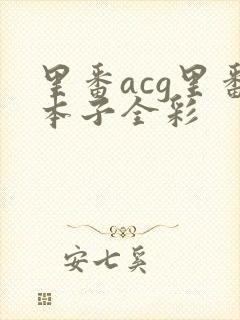 里番acg里番
本子全彩
安七奚